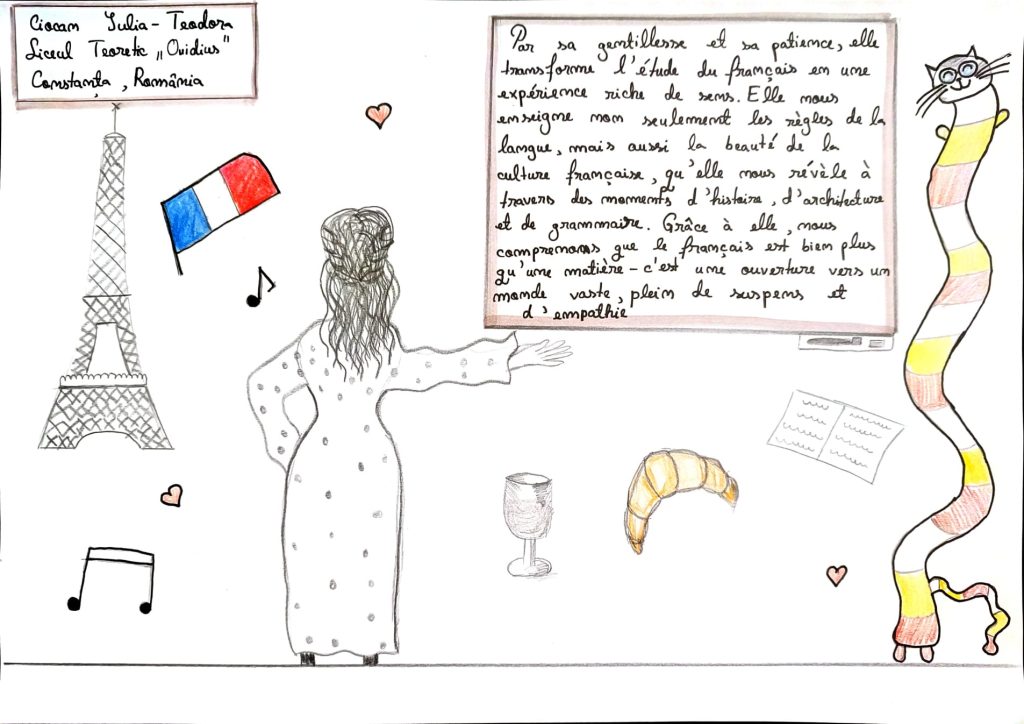 Ciocan Iulia-Teodora
Liceul Teoretic „Ovidius"
Constanța, România
Par sa gentillesse et sa patience, elle
transforme l'étude du français en une
expérience riche de sens. Elle nous
enseigne non seulement les règles de la
langue, mais aussi la beauté de la
culture française, qu'elle nous révèle à
travers des moments d'histoire, d'architecture
et de grammaire. Grâce à elle, nous
comprenons que le français est bien plus
qu'une matière - c'est une ouverture vers un
monde vaste, plein de suspens et
d'empathie